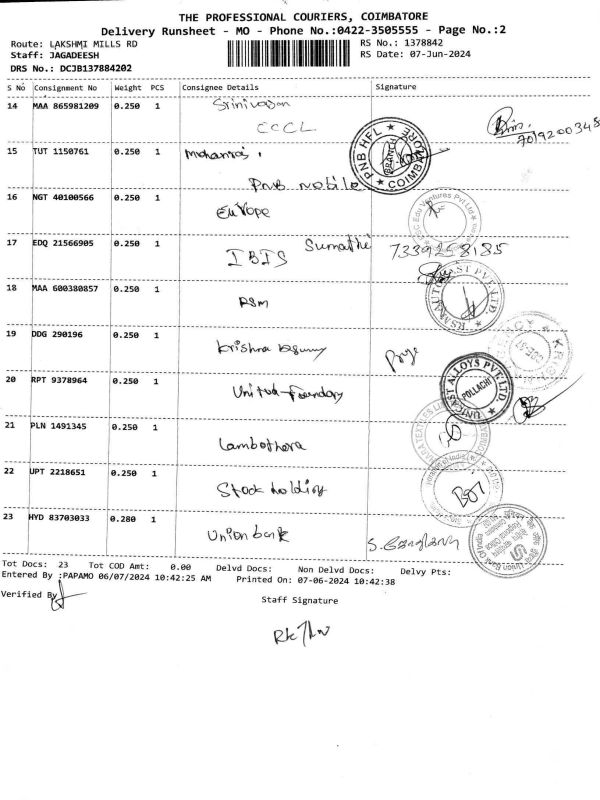 THE PROFESSIONAL COURIERS, COIMBATORE
Delivery Runsheet - MO - Phone No.:0422-3505555 - Page No.:2
Route: LAKSHMI MILLS RD
RS No.: 1378842
Staff: JAGADEESH
RS Date: 07-Jun-2024
DRS No.: DCJB137884202
S No Consignment No Weight PCS Consignee Details Signature
14 MAA 865981209 0.250 1 Srinivasan
CCCL
PNB HFL BRANCH COIMBATORE
15 TUT 1150761 0.250 1
PNB mobile
16 NGT 40100566 0.250 1 Europe
17 EDQ 21566905 0.250 1 IBIS Sumathi 7339258185
18 MAA 600380857 0.250 1 RSM
19 DDG 290196 0.250 1 Krishna
20 RPT 9378964 0.250 1 United Foundry
UNICAST ALLOYS PVT. LTD. POLLACHI
21 PLN 1491345 0.250 1 Lambothora
22 UPT 2218651 0.250 1 Stock holding
23 HYD 83703033 0.280 1 Union bank
Tot Docs: 23 Tot COD Amt: 0.00 Delvd Docs: Non Delvd Docs: Delvy Pts:
Entered By :PAPAMO 06/07/2024 10:42:25 AM Printed On: 07-06-2024 10:42:38
Verified By
Staff Signature